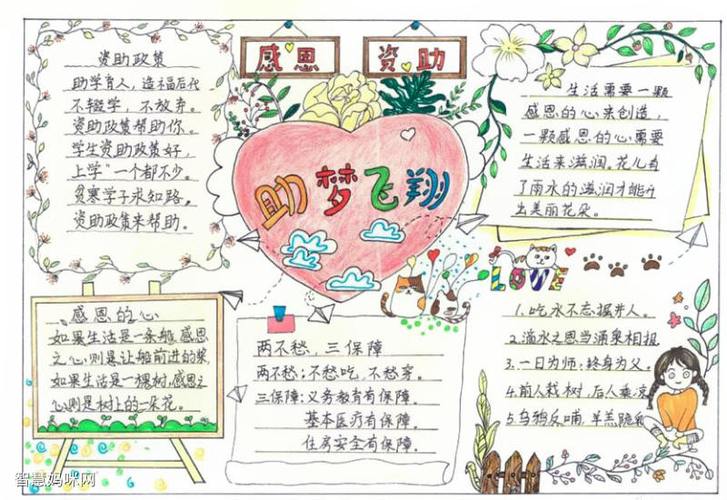 感恩 资助
资助政策
助学育人，造福后代
不辍学，不放弃。
资助政策帮助你。
学生资助政策好，
上学“一个都不少。
贫寒学子求知路，
资助政策来帮助。
助梦飞翔
生活需要一颗
感恩的心来创造，
一颗感恩的心需要
生活来滋润。花儿有
了雨水的滋润才能开
出美丽花朵。
LOVE
感恩的心
如果生活是一条船,感恩
之心则是让船前进的桨
如果生活是一棵树,感恩之
心则是树上的一朵花。
两不愁，三保障
两不愁：不愁吃，不愁穿。
三保障：义务教育有保障。
基本医疗有保障。
住房安全有保障。
1.吃水不忘掘井人。
2.滴水之恩当涌泉相报
3.一日为师,终身为父。
4.前人栽树,后人乘凉
5.乌鸦反哺,羊羔跪
智慧妈咪网